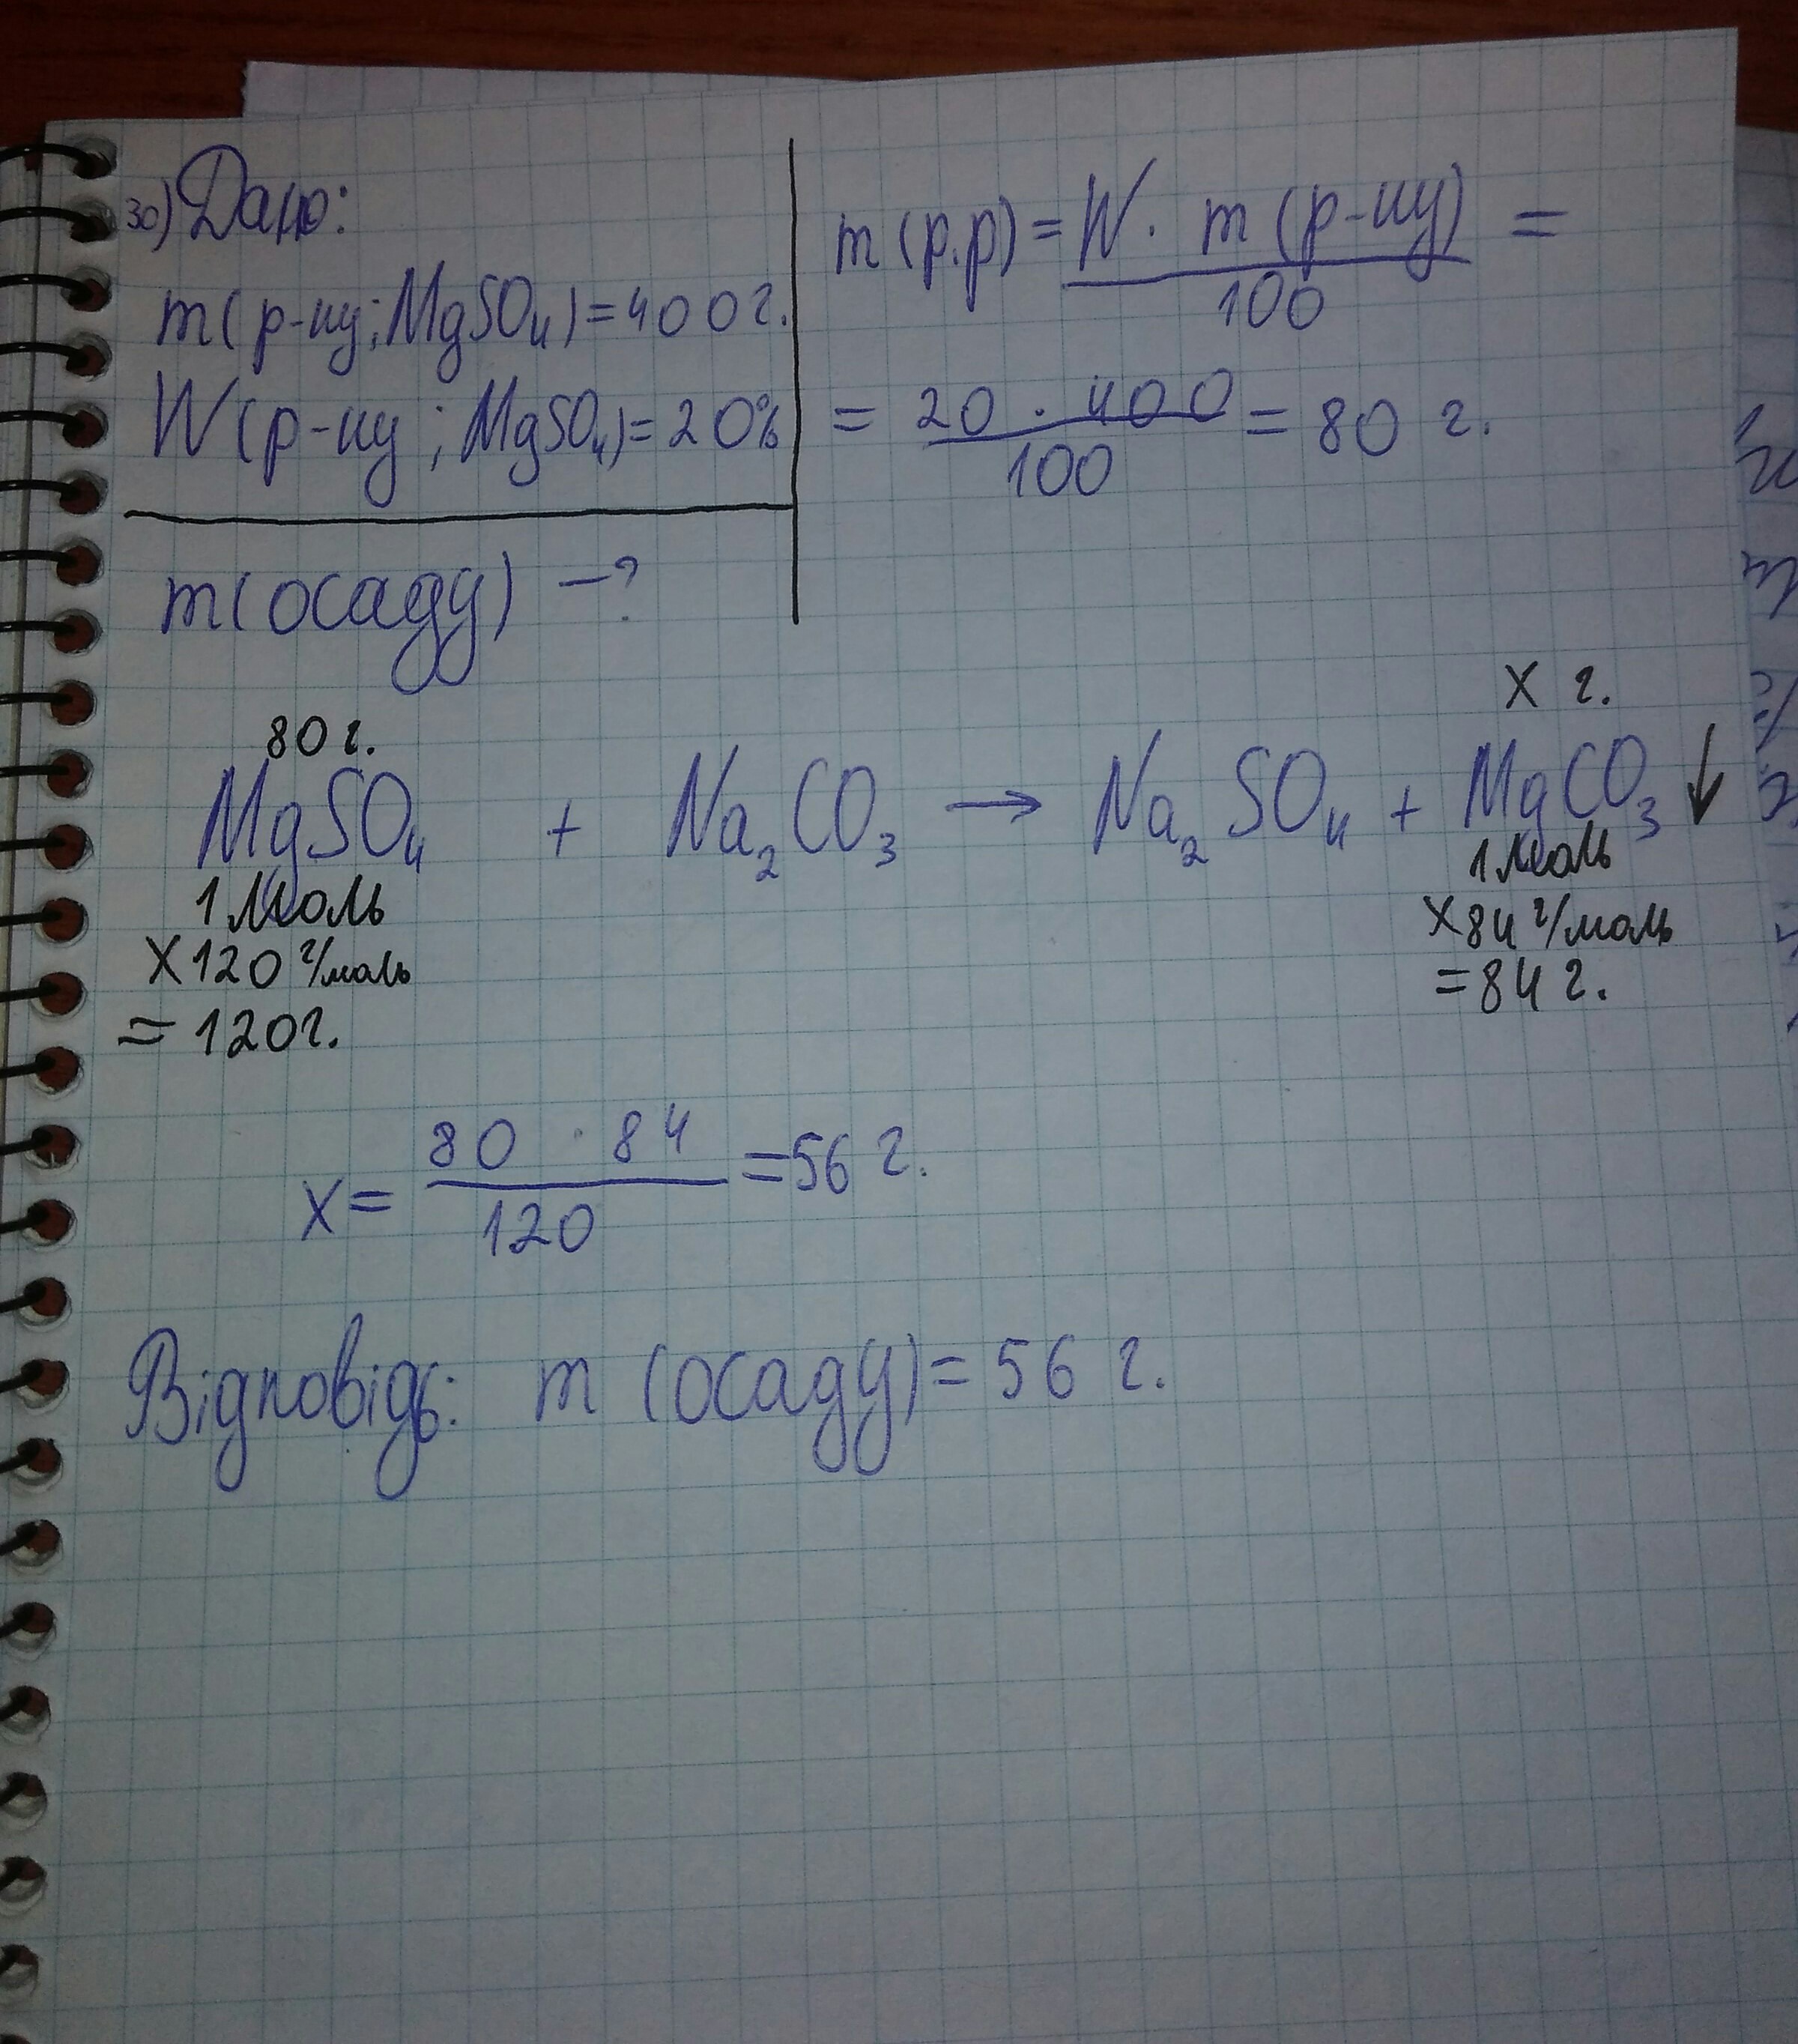 30) Дано:
m(р-ну; MgSO₄) = 400 г.
W(р-ну; MgSO₄) = 20%
m(осаду) – ?
m(р.р) = W · m(р-ну) / 100 =
= 20 · 400 / 100 = 80 г.
80 г. X г.
MgSO₄ + Na₂CO₃ → Na₂SO₄ + MgCO₃↓
1 моль 1 моль
X 120 г/моль X 84 г/моль
= 120 г. = 84 г.
X = 80 · 84 / 120 = 56 г.
Відповідь: m (осаду) = 56 г.